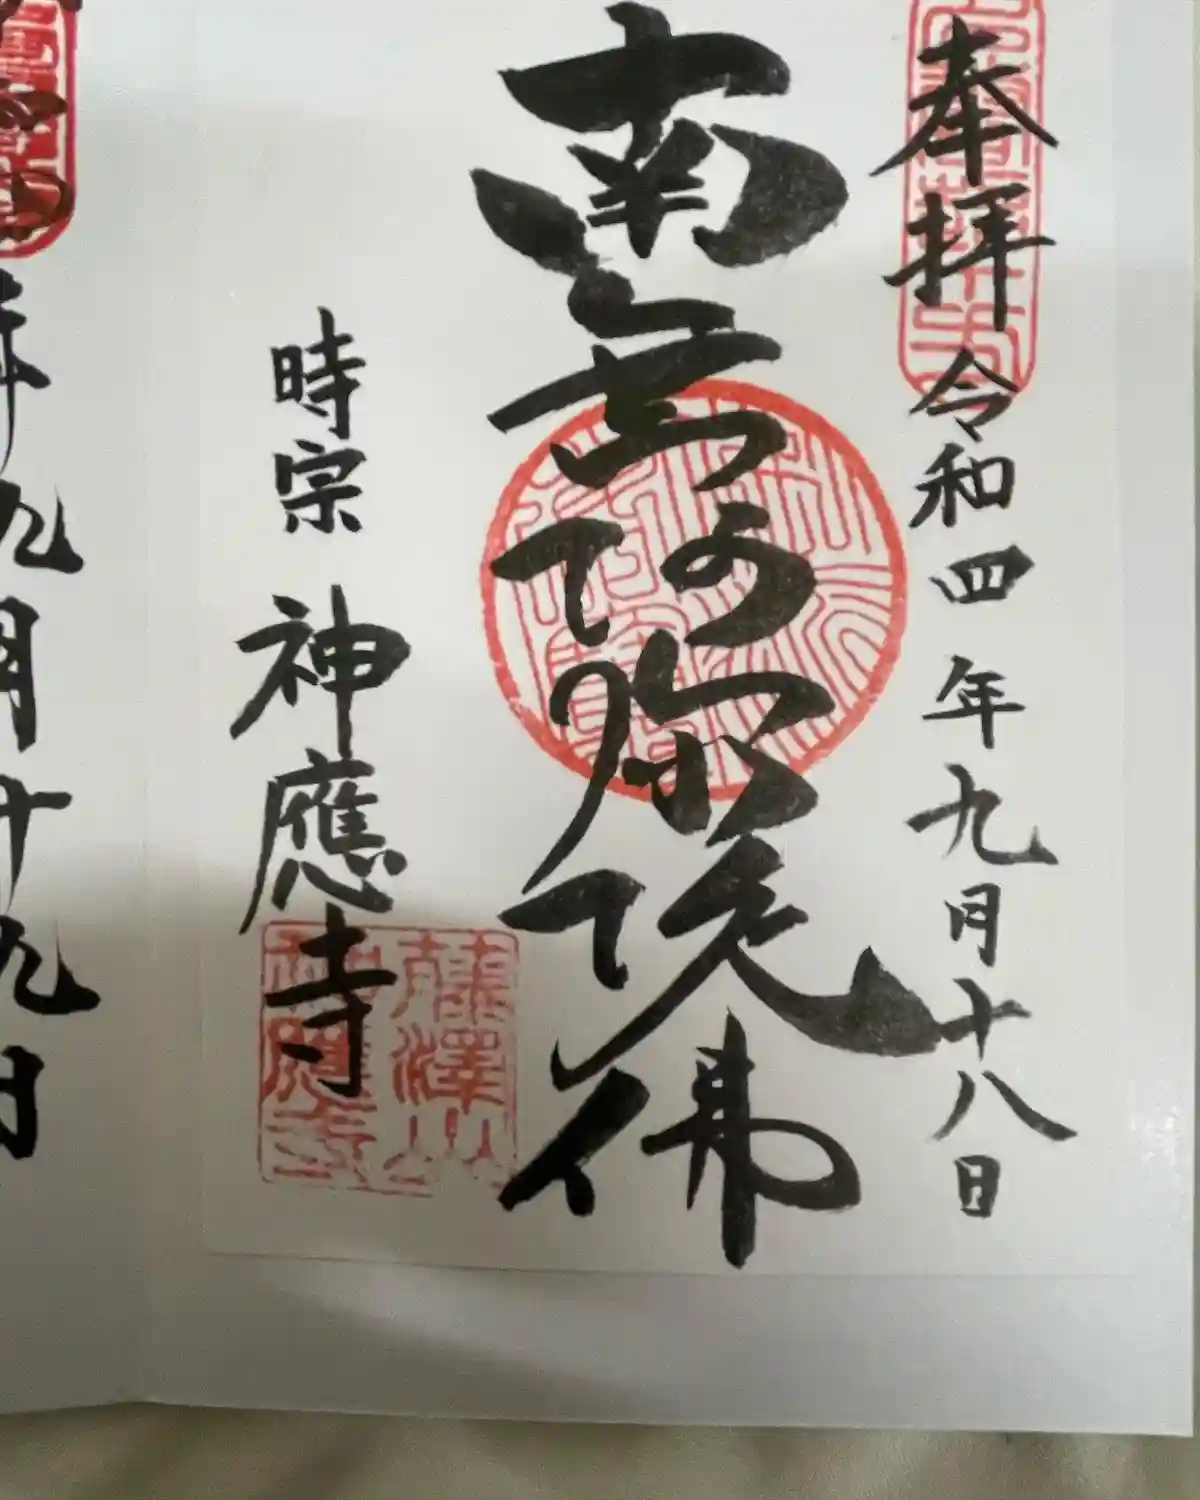 奉拝 令和四年九月十八日
南無阿弥陀佛
時宗 神應寺
藤澤山
神應寺
年九月十九日